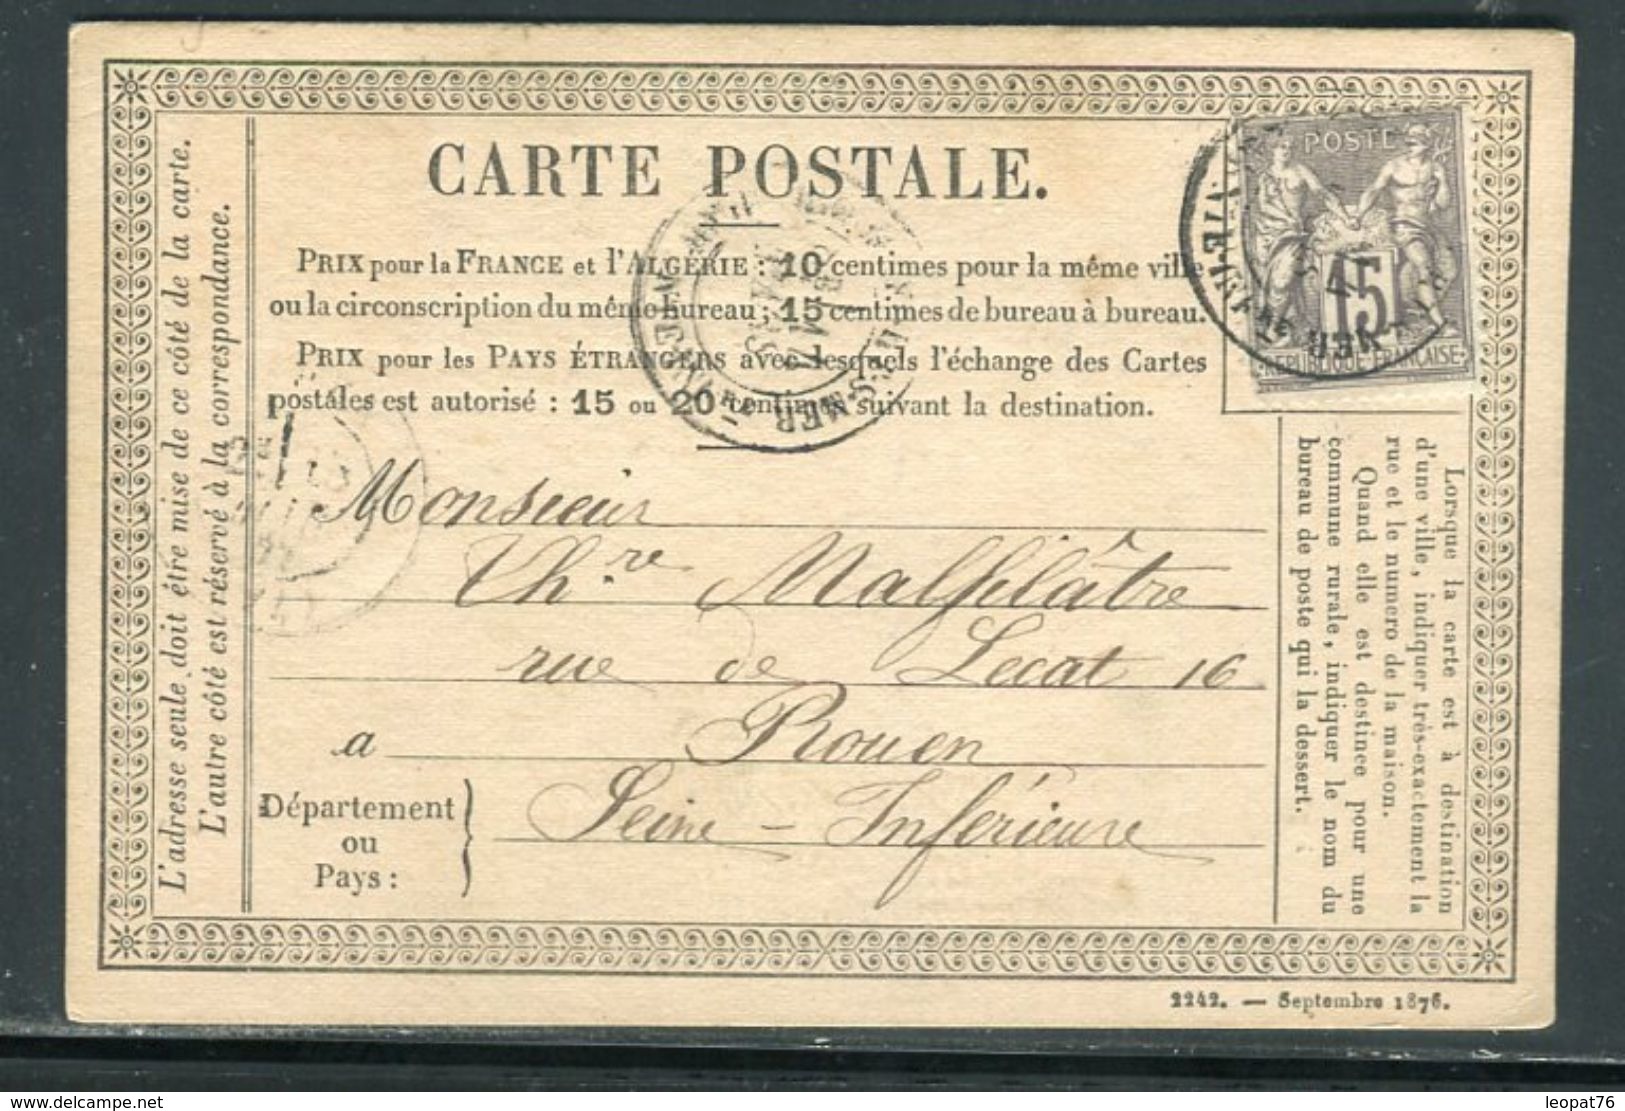 CARTE POSTALE.
PRIX pour la FRANCE et l'ALGÉRIE : 10 centimes pour la même ville
ou la circonscription du même bureau ; 15 centimes de bureau à bureau.
PRIX pour les PAYS ÉTRANGERS avec lesquels l'échange des Cartes
postales est autorisé : 15 ou 20 centimes suivant la destination.
POSTE
15
REPUBLIQUE FRANÇAISE
L'adresse seule doit être mise de ce côté de la carte.
L'autre côté est réservé à la correspondance.
Monsieur
Th.re Malfilâtre
rue de Lecat 16
a Rouen
Département
ou
Pays :
Seine-Inférieure
Lorsque la carte est à destination
d'une ville, indiquer très-exactement la
rue et le numéro de la maison.
Quand elle est destinée pour une
commune rurale, indiquer le nom du
bureau de poste qui la dessert.
2242. — Septembre 1876.
www.delcampe.net
leopat76